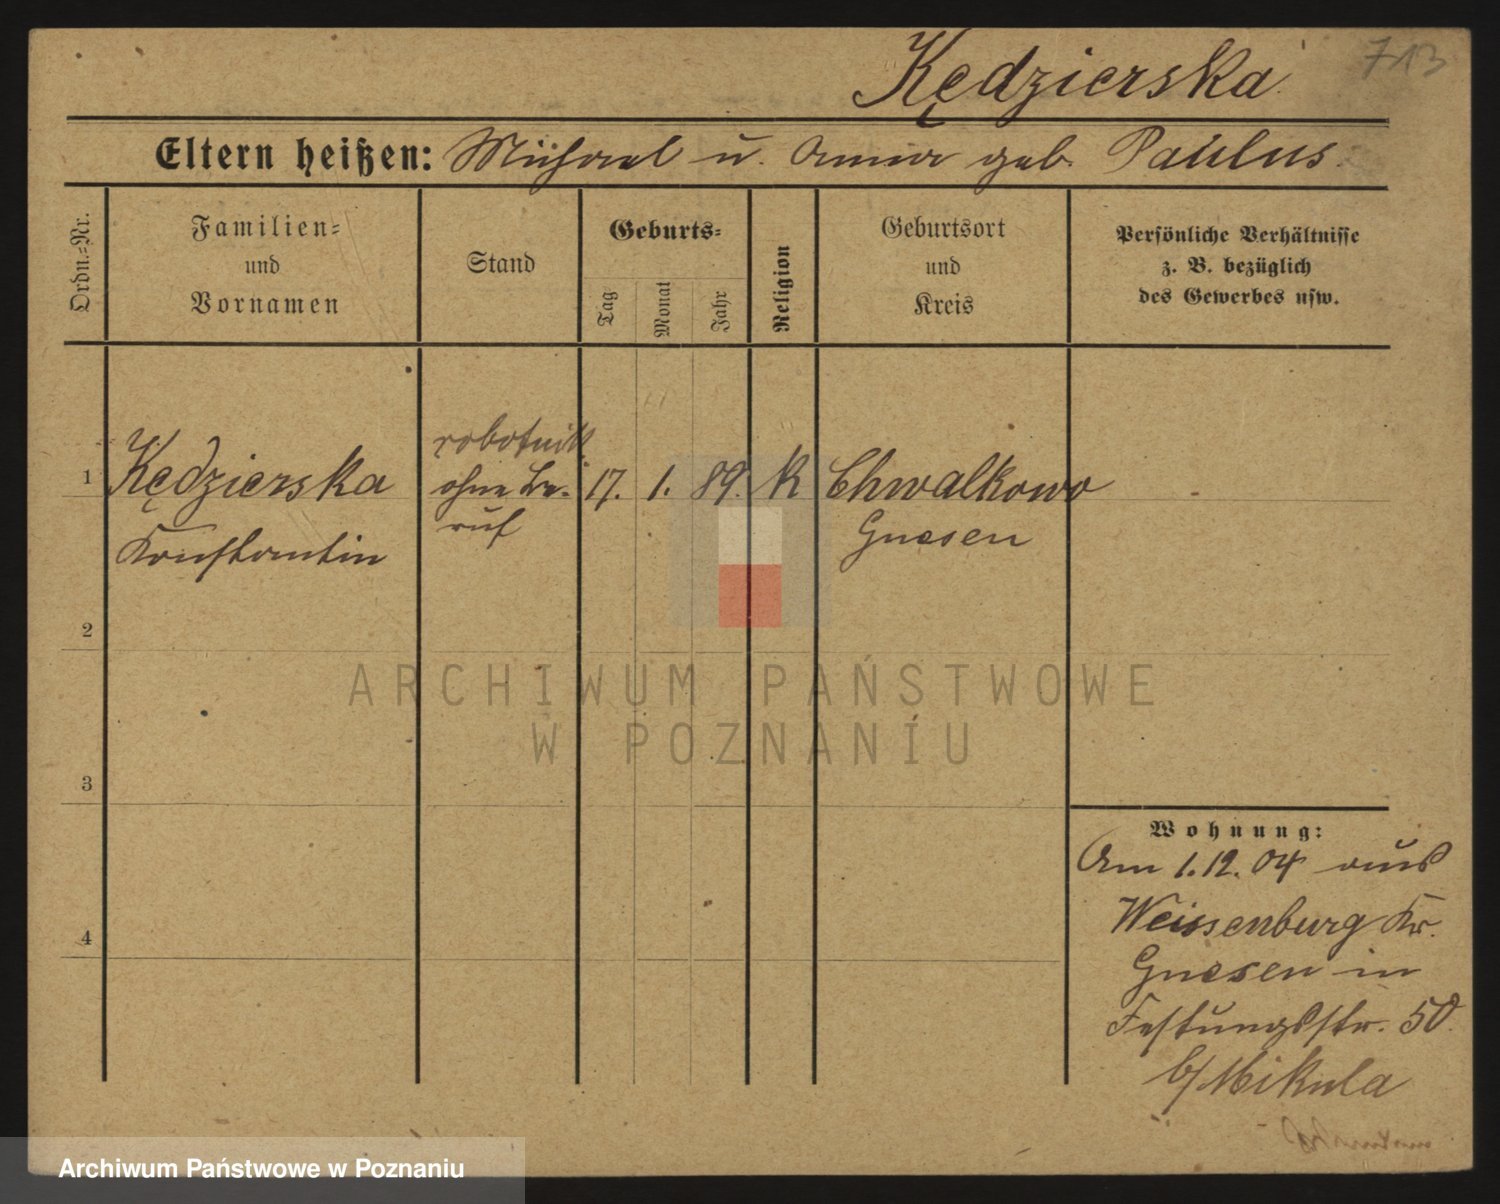 713
Kędzierska
Eltern heißen: Michael u. Anna geb. Paulus.
Ordn.-Nr.
Familien-
und
Vornamen
Stand
Geburts-
Tag
Monat
Jahr
Religion
Geburtsort
und
Kreis
Persönliche Verhältnisse
z. B. bezüglich
des Gewerbes usw.
robotnik
1 Kędzierska ohne Be- 17. 1. 89. K Chwalkowo
ruf Gnesen
Konstantin
2
3
4
Wohnung:
Am 1.12.04 aus
Weissenburg Kr.
Gnesen in
Festungsstr. 50.
b/Mikula
ARCHIWUM PAŃSTWOWE
W POZNANIU
Archiwum Państwowe w Poznaniu